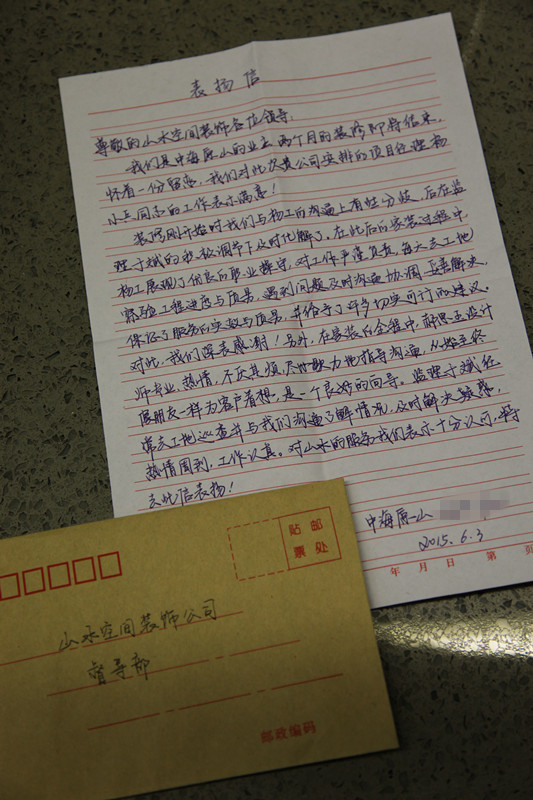 表扬信
尊敬的山水空间装饰各位领导:
我们是中海原山的业主,两个月的装修即将结束,
怀着一份留恋,我们对此次贵公司安排的项目经理杨
小兵同志的工作表示满意!
装修刚开始时我们与杨工的沟通上有些分歧,后在监
理于斌的积极调节下及时化解了。在此后的家装过程中
杨工展现了优良的职业操守,对工作严谨负责,每天去工地
察验工程进度与质量,遇到问题及时沟通协调、妥善解决,
保证了服务的实效与质量,并给予了许多切实可行的建议。
对此,我们深表感谢!另外,在家装的全程中,
设计
师专业,热情,不厌其烦,尽心竭力地指导沟通,从始至终
像朋友一样为客户着想,是一个良好的向导。监理于斌经
常去工地巡查并与我们沟通了解情况,及时解决疑惑,
热情周到,工作认真。对山水的服务我们表示十分认可,特
去此信表扬!
中海原山
2015.6.3
年 月 日 第 页
贴 邮
票 处
山水空间装饰公司
督导部
邮政编码